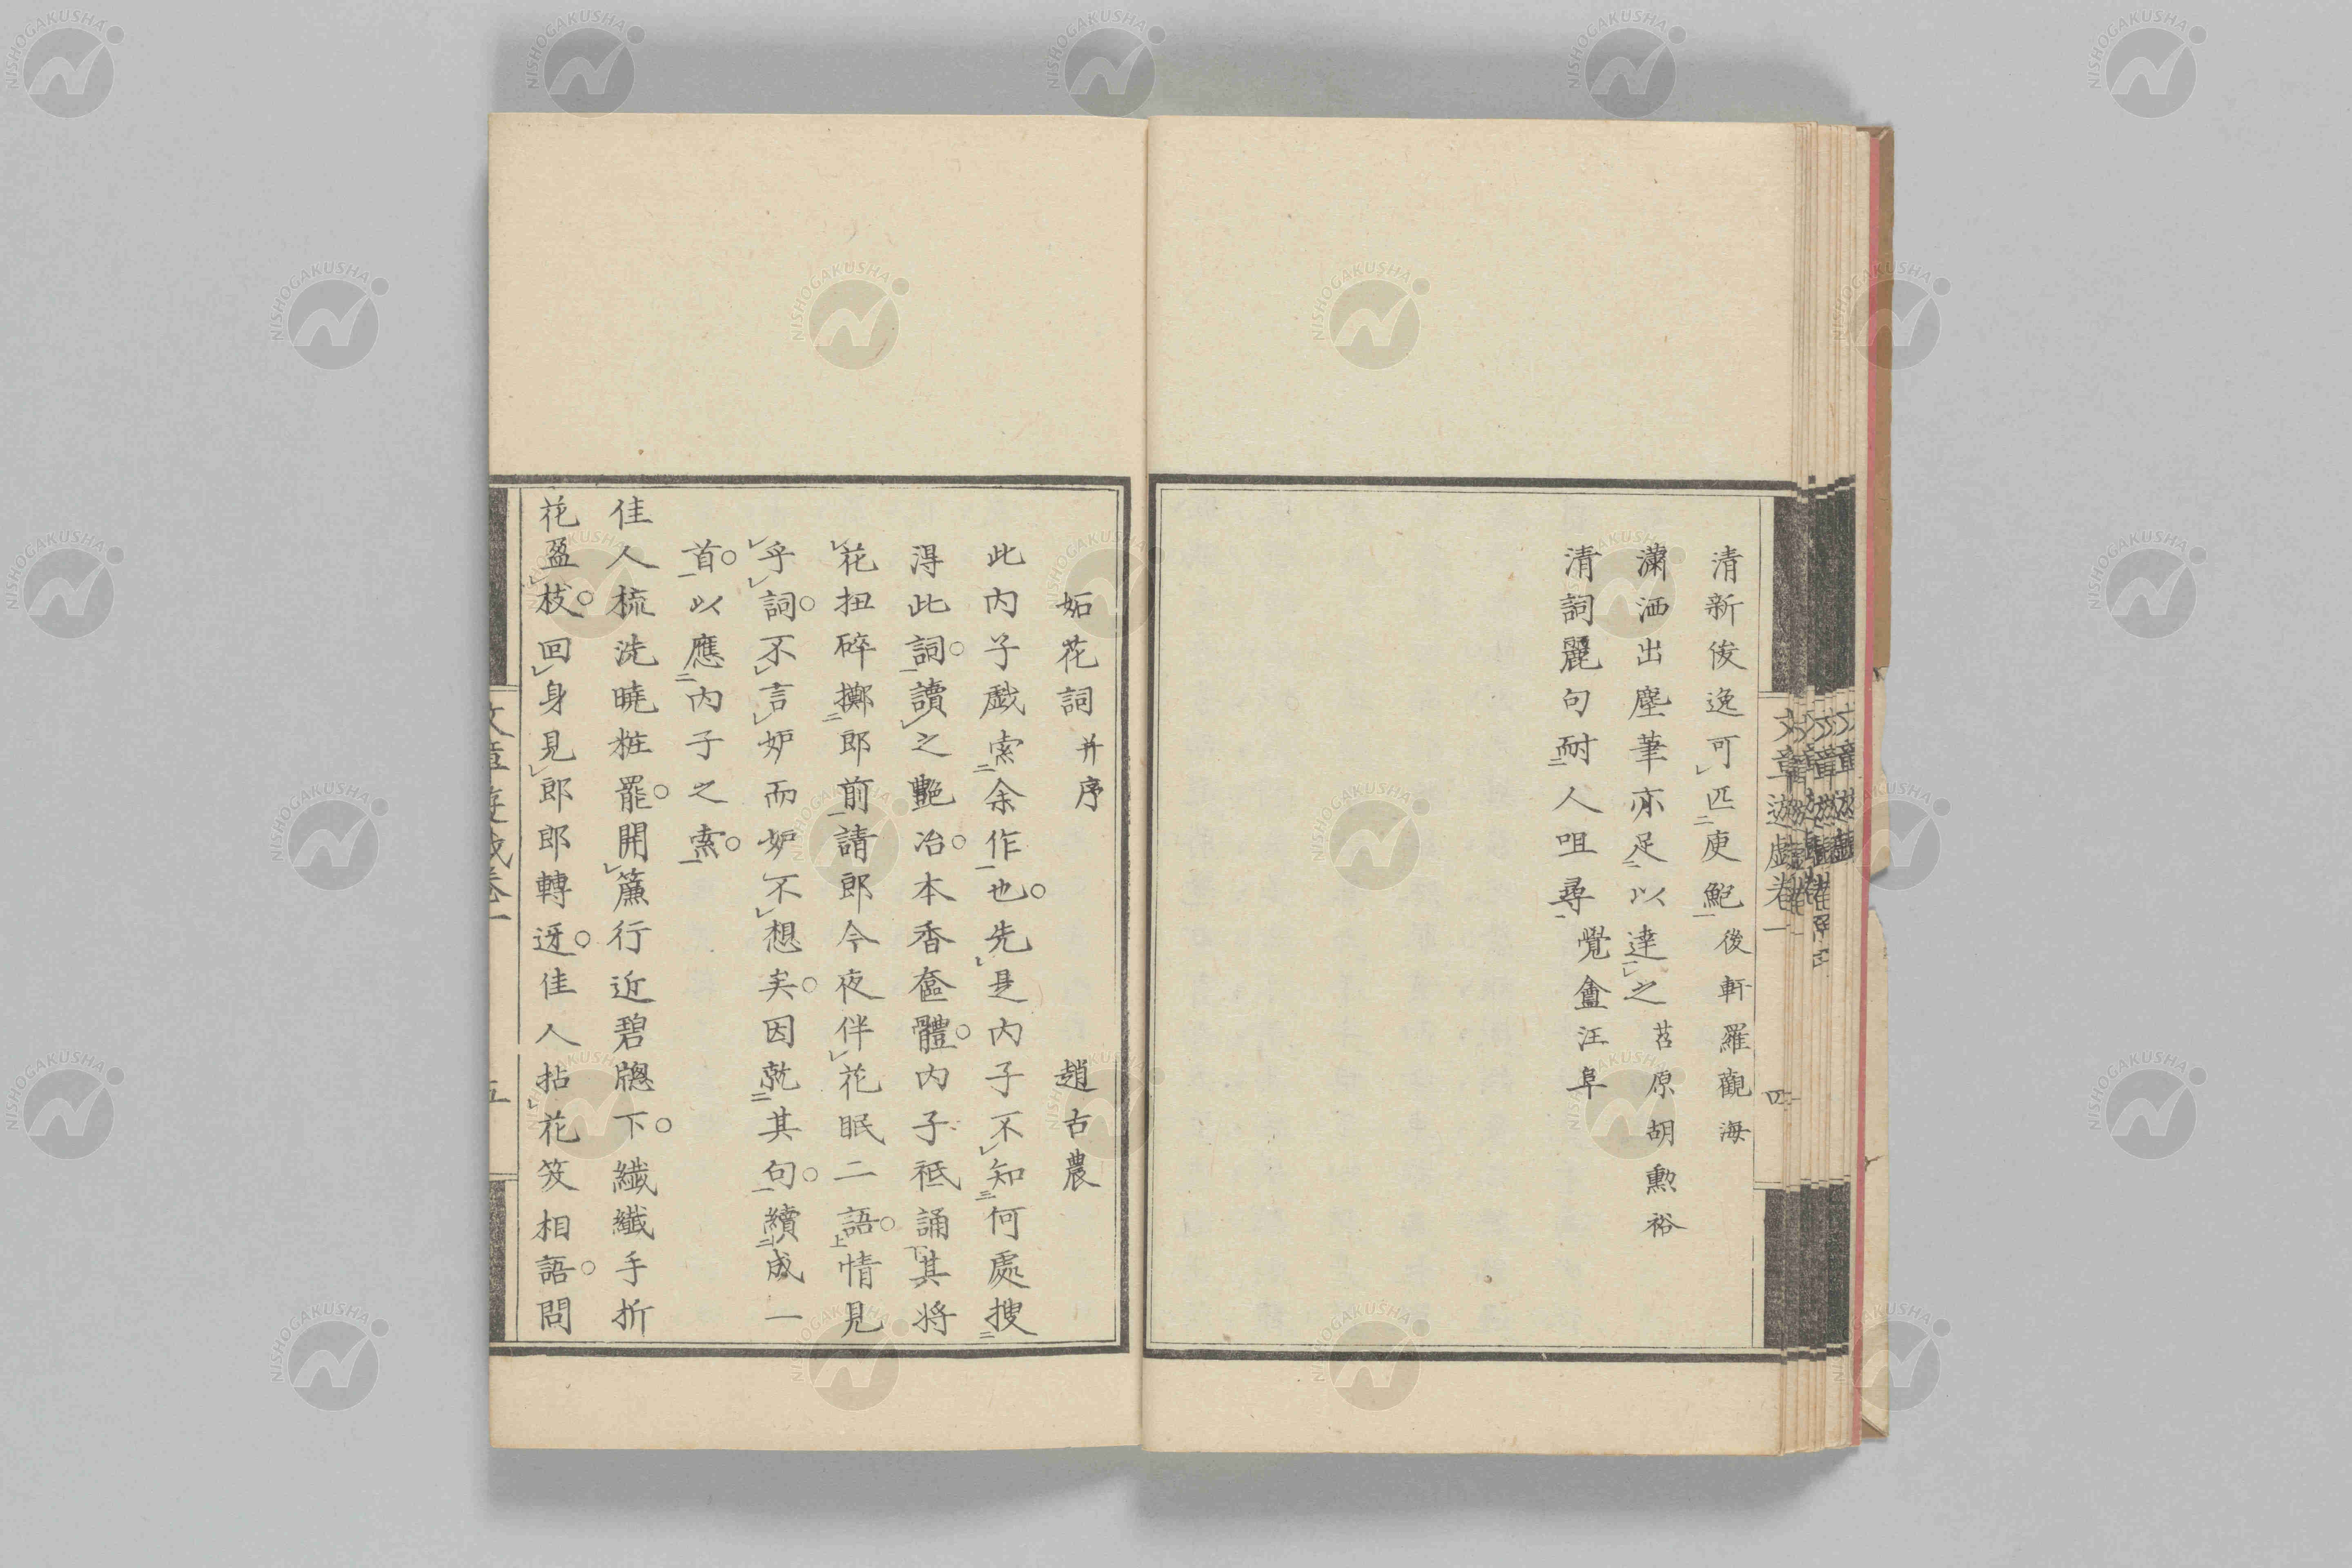 清新俊逸可匹庾鮑後軒羅觀海
瀟洒出塵筆亦足以達之苕原胡勲裕
清詞麗句耐人咀尋覺盦汪阜
文章遊戯卷一
四
妬花詞并序 趙古農
此内子戯索余作也。先是内子不知何處搜
得此詞。讀之艷冶。本香奩體。内子祗誦其將
花扭碎擲郎前請郎今夜伴花眠二語。情見
乎詞。不言妒而妒不想矣。因就其句。續成一
首。以應内子之索。
佳人梳洗曉粧罷。開簾行近碧牕下。纖纖手折
花盈枝。回身見郎郎轉迓。佳人拈花笑相語。問
文章遊戯卷一
五
NISHOGAKUSHA